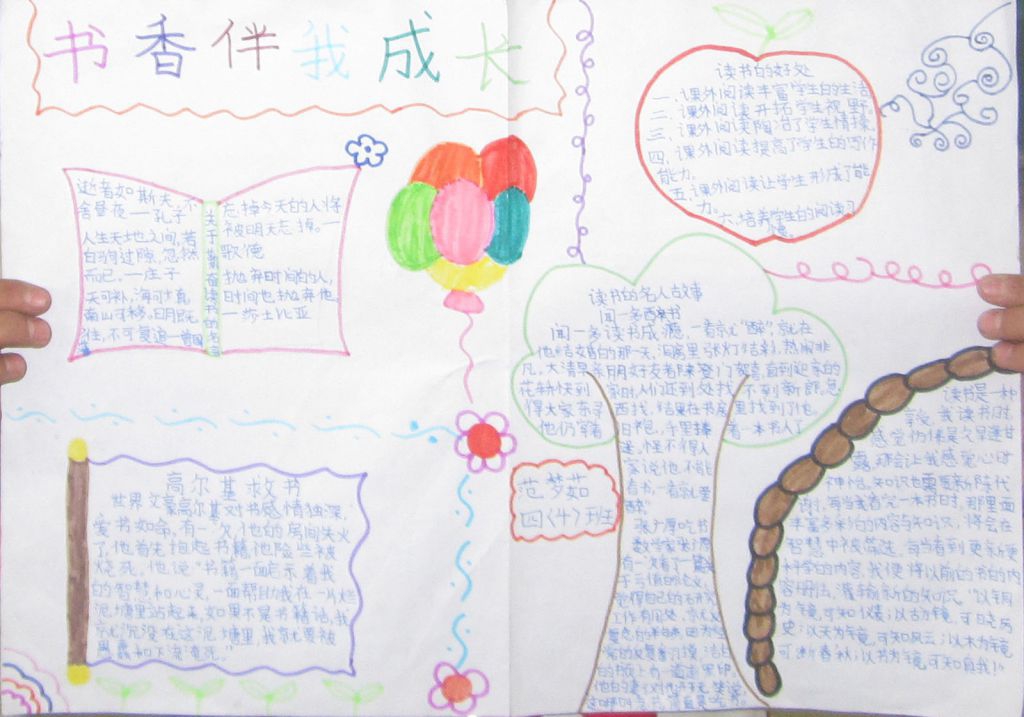 书香伴我成长
逝者如斯夫,不
舍昼夜 — 孔子
人生天地之间,若
白驹过隙,忽然
而已。— 庄子
天可补,海可填,
南山可移。日月既
往,不可复追 — 曾国
藩
关于勤奋读书的名言
忘掉今天的人将
被明天忘掉。—
歌德
抛弃时间的人,
时间也抛弃他。
— 莎士比亚
读书的好处
一、课外阅读丰富学生的生活
二、课外阅读开拓学生视野。
三、课外阅读陶冶了学生情操。
四、课外阅读提高了学生的写作
能力。
五、课外阅读让学生形成了能
力。六、培养学生的阅读习
惯。
高尔基救书
世界文豪高尔基对书感情独深,
爱书如命。有一次,他的房间失火
了,他首先抱起书籍,他险些被
烧死。他说:“书籍一面启示着我
的智慧和心灵,一面帮助我在一片烂
泥塘里站起来,如果不是书籍的话,我
就沉没在这泥塘里,我就要被
愚蠢和下流淹死。”
读书的名人故事
闻一多醉书
闻一多读书成瘾,一看就“醉”,就在
他结婚的那一天,洞房里张灯结彩,热闹非
凡。大清早亲朋好友都来登门贺喜,直到迎亲的
花轿快到家时,人们还到处找不到新郎。急
得大家东寻西找,结果在书房里找到了他。
他仍穿着旧袍,手里捧着一本书入了
迷。怪不得人
家说他不能
看书,一看就要
“醉”
张广厚吃书
数学家张广厚
有一次看了一篇关
于亏值的论文,
觉得自己的
工作有用处,就
范梦茹
四(4)班
读书是一种
享受。我读书时
感觉仿佛是久旱逢甘
露,那会让我感觉心旷
神怡。知识也需要新陈代
谢,每当我看完一本书时,那里面
丰富多彩的内容与知识,将会在
智慧中被筛选,每当看到更新更
好学的内容,我便将以前的书的内
容删去,灌输新的知识。“以铜
为镜,可知仪表;以古为镜,可日
史;以天为镜,可知风云;以木为镜
可断春秋;以书为镜,可知自我!”